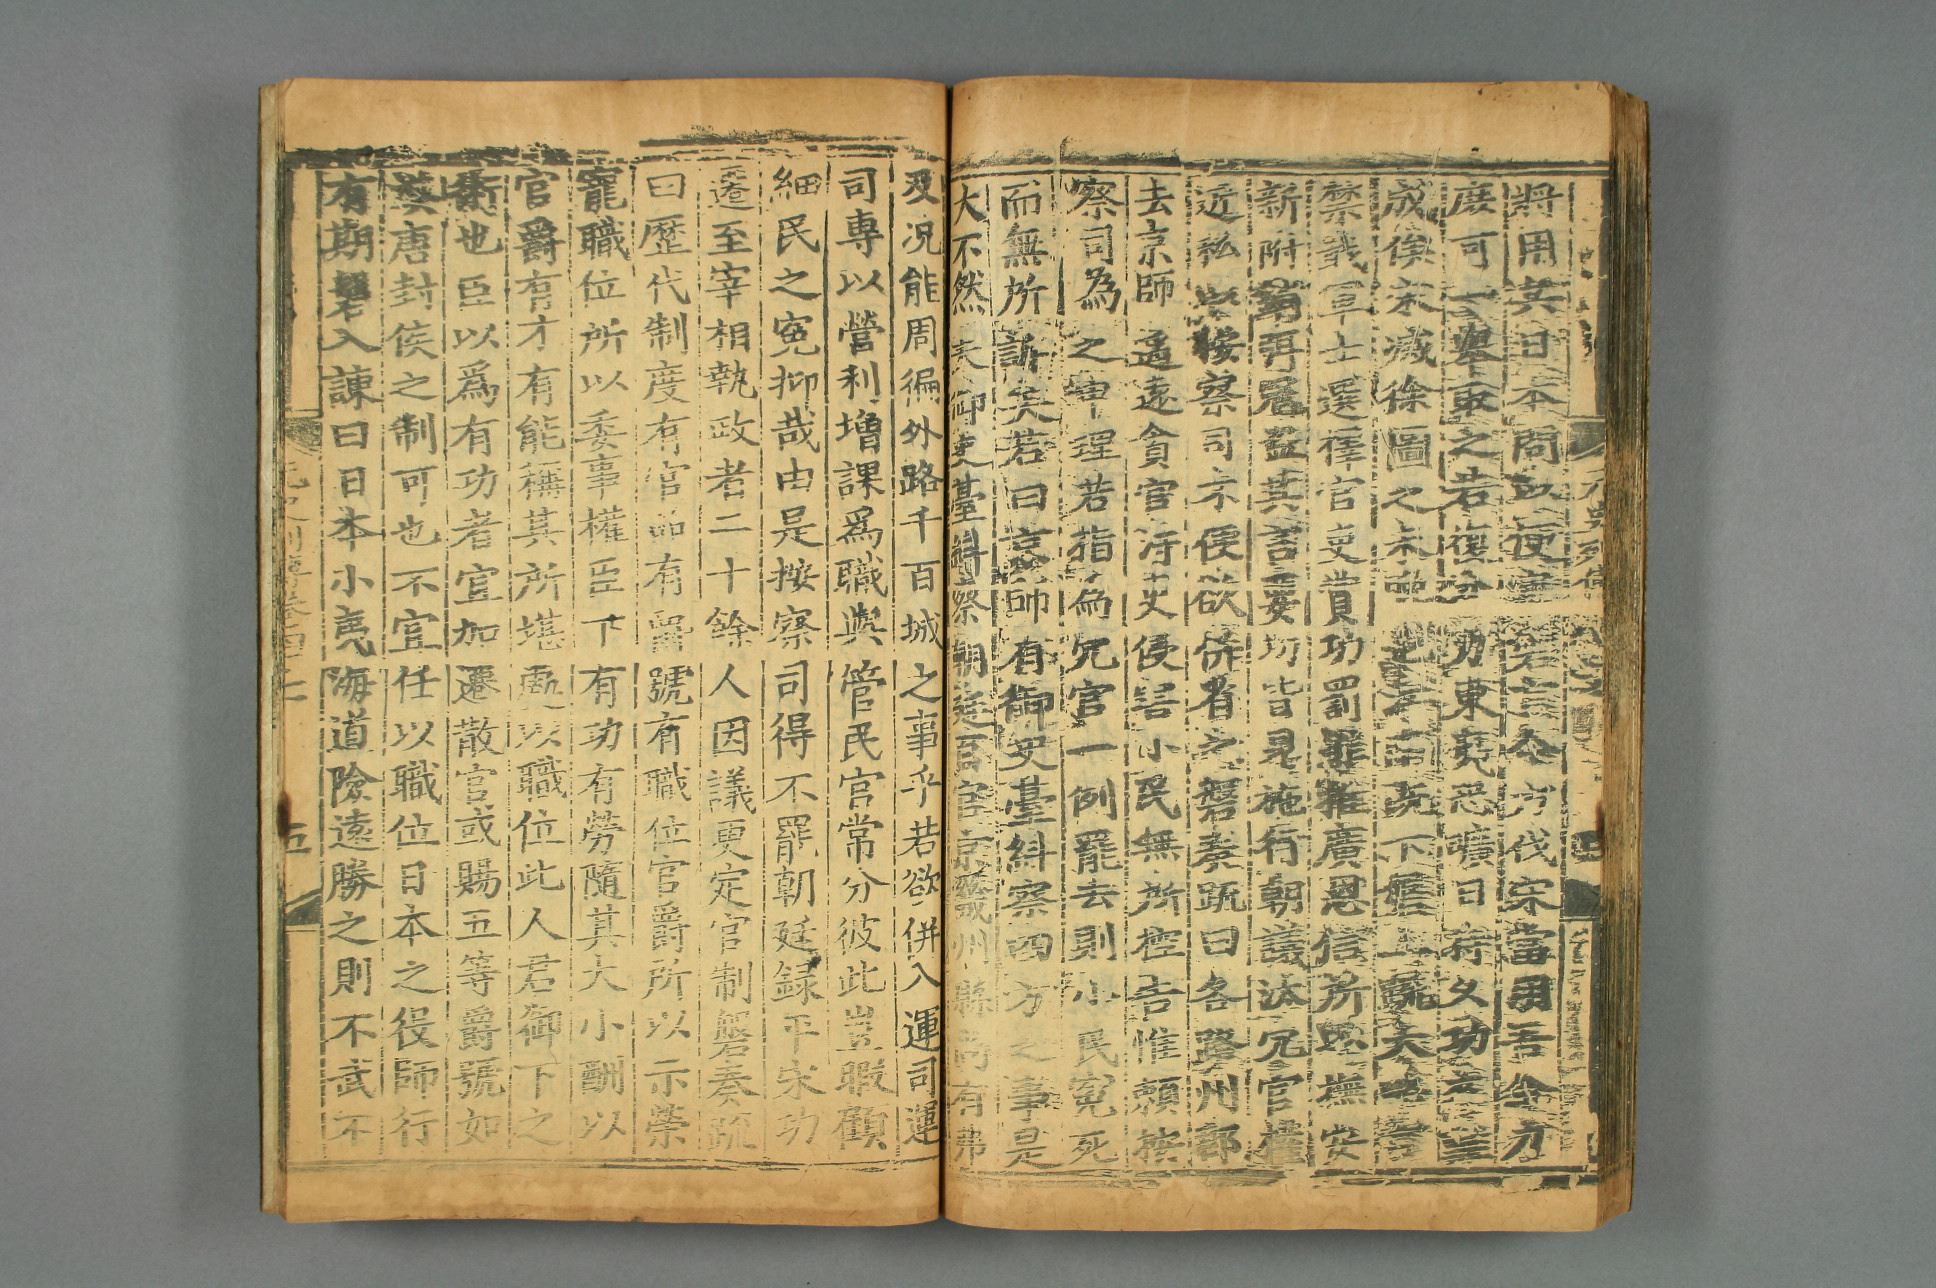 將用兵日本問以便宜磐言今方伐宋當用吾全力
庶可一舉取之若復分力東夷恐曠日持久功卒難
成俟宋滅徐圖之未晚也江南既下磐上疏大略言
禁戢軍士選擇官吏賞功罰罪推廣恩信所以撫安
新附消弭寇盜其言要切皆見施行朝議汰冗官權
近私以按察司不便欲併省之磐奏疏曰各路州郡
去京師遥遠貪官污吏侵害小民無所控告惟賴按
察司為之申理若指為冗官一例罷去則小民寃死
而無所訴矣若曰京師有御史臺糾察四方之事是
大不然夫御史臺糾察朝廷百官京畿州縣尚有弗
及况能周徧外路千百城之事乎若欲併入運司運
司專以營利增課爲職與管民官常分彼此豈暇顧
細民之寃抑哉由是按察司得不罷朝廷録平宋功
遷至宰相執政者二十餘人因議更定官制磐奏疏
曰歷代制度有官品有爵號有職位官爵所以示榮
寵職位所以委事權臣下有功有勞隨其大小酬以
官爵有才有能稱其所堪處以職位此人君御下之
術也臣以爲有功者宜加遷散官或賜五等爵號如
漢唐封侯之制可也不宜任以職位日本之役師行
有期磐入諫曰日本小夷海道險遠勝之則不武不
元史列傳卷四十七
五